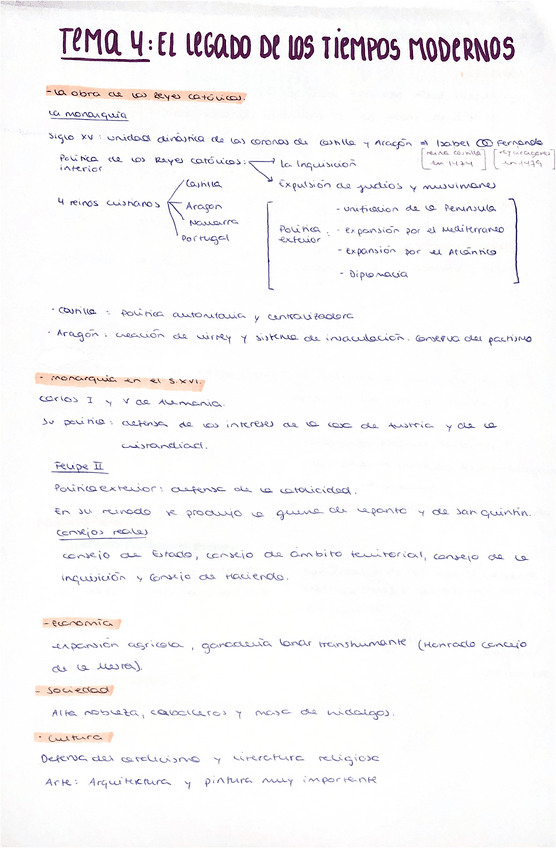 TEMA 4: EL LEGADO DE LOS TIEMPOS MODERNOS
- La obra de los Reyes Católicos.
La monarquía
Siglo XV: unidad dinástica de las coronas de Castilla y Aragón → Isabel Fernando
[reina Castilla en 1474] [rey Aragonés en 1479]
Política de los Reyes Católicos: → La Inquisición
interior → Expulsión de judíos y musulmanes
4 reinos cristianos
Castilla
Aragón
Navarra
Portugal
Política exterior:
- unificación de la Península
- expansión por el Mediterráneo
- expansión por el Atlántico
- Diplomacia
· Castilla: política autoritaria y centralizadora
· Aragón: creación de virrey y sistema de insaculación. Conserva del pactismo
- Monarquía en el S.XVI.
Carlos I y V de Alemania.
Su política: defensa de los intereses de la casa de Austria y de la
cristiandad.
Felipe II
Política exterior: defensa de la catolicidad.
En su reinado se produjo la guerra de Lepanto y de San Quintín.
Consejos reales
Consejo de Estado, consejo de ámbito territorial, consejo de la
Inquisición y Consejo de Hacienda.
- Economía
expansión agrícola, ganadería lanar transhumante (Honrado concejo
de la Mesta).
- Sociedad
Alta nobleza, caballeros y masa de hidalgos.
· Cultura
Defensa del catolicismo y literatura religiosa
Arte: Arquitektura y pintura muy importante